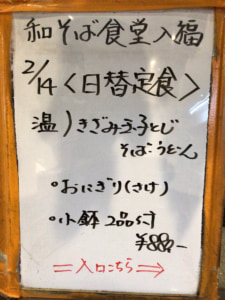 和そば食堂入福
2/14<日替定食>
温)きざみ玉子とじ
そば・うどん
・おにぎり(さけ)
・小鉢2品付
¥880-
=入口こちら⇒